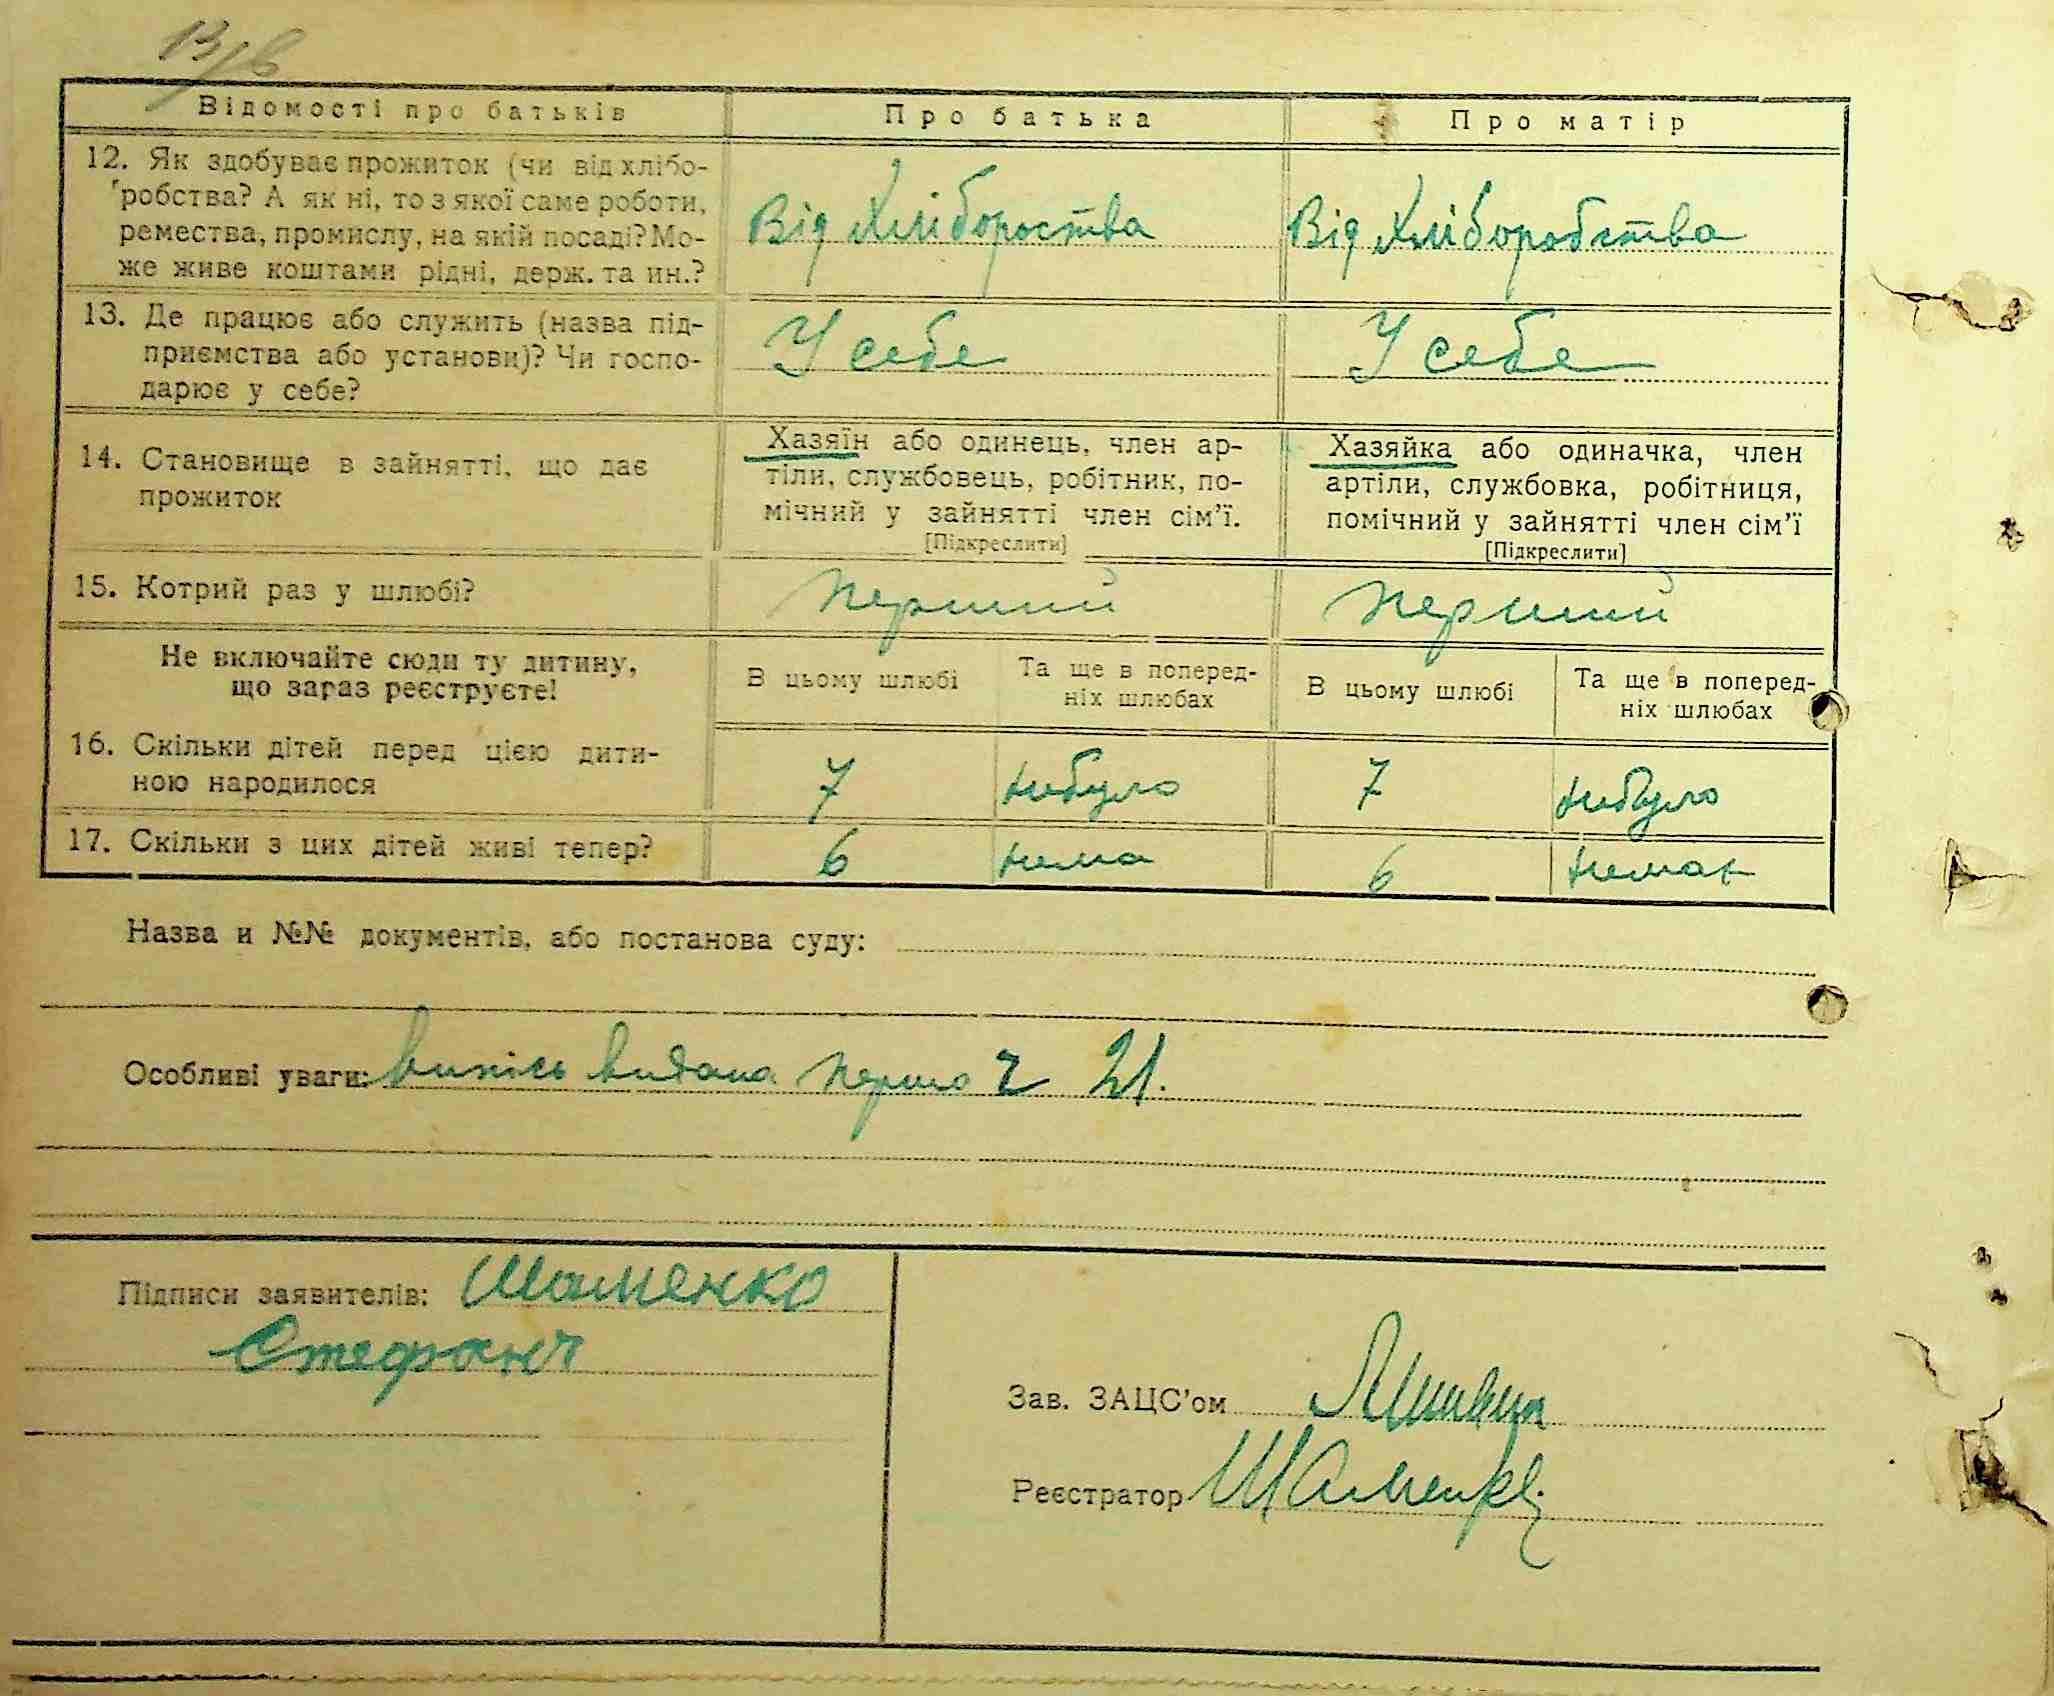 13/6
Відомості про батьків
Про батька
Про матір
12. Як здобуває прожиток (чи від хлібо-
робства? А як ні, то з якої саме роботи,
ремества, промислу, на якій посаді? Мо-
же живе коштами рідні, держ. та ин.?
Від Хлібороства
Від Хліборобства
13. Де працює або служить (назва під-
приємства або установи)? Чи госпо-
дарює у себе?
У себе
У себе
14. Становище в зайнятті, що дає
прожиток
Хазяїн або одинець, член ар-
тіли, службовець, робітник, по-
мічний у зайнятті член сім’ї.
[Підкреслити]
Хазяйка або одиначка, член
артіли, службовка, робітниця,
помічний у зайнятті член сім’ї
[Підкреслити]
15. Котрий раз у шлюбі?
перший
перший
Не включайте сюди ту дитину,
що зараз реєструєте!
В цьому шлюбі
Та ще в поперед-
ніх шлюбах
В цьому шлюбі
Та ще в поперед-
ніх шлюбах
16. Скільки дітей перед цією дити-
ною народилося
7
небуло
7
небуло
17. Скільки з цих дітей живі тепер?
6
нема
6
немає
Назва и №№ документів, або постанова суду:
Особливі уваги: випісь видана 21.
Підписи заявителів: Шаменко
Стефан
Зав. ЗАЦС’ом
Реєстратор